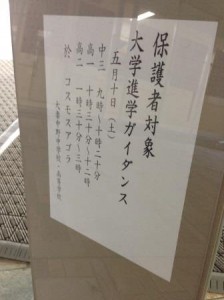 保護者対象
大学進学ガイダンス
五月十日（土）
中三　九時～十時二十分
高一　十時三十分～十二時
高二　一時三十分～三時
於　コスモスアゴラ